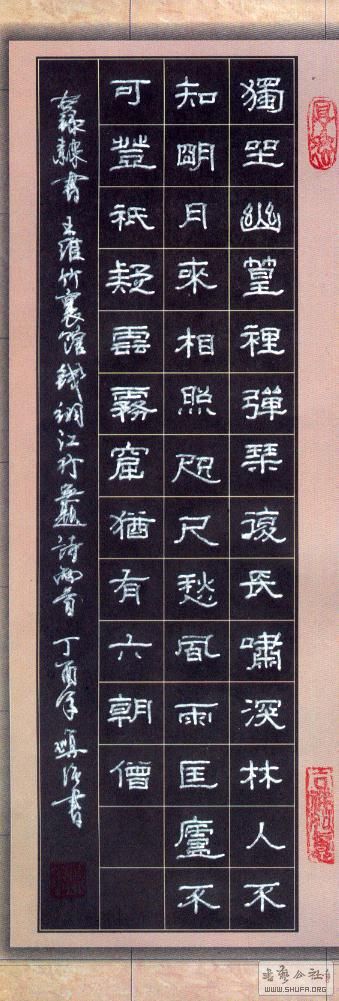 獨坐幽篁裡彈琴復長嘯深林人不
知明月來相照咫尺愁風雨匡廬不
可登祇疑雲霧窟猶有六朝僧
錄隸書 王維竹裏館錢珝江行無題詩兩首 丁酉年 書
书法公社
WWW.SHUFA.ORG